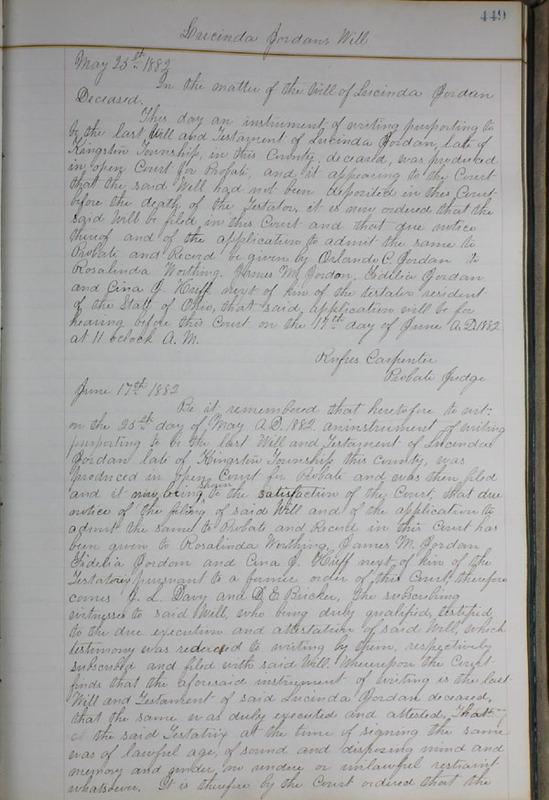 449
Lucinda Jordans Will
May 25th 1882
In the matter of the Will of Lucinda Jordan
Deceased.
This day an instrument of writing purporting to
be the last Will and Testament of Lucinda Jordan, late of
Kingston Township, in this County, deceased, was produced
in open Court for Probate, and it appearing to the Court
that the said Will had not been deposited in this Court
before the death of the Testator, it is now ordered that the
said Will be filed in this Court and that due notice
thereof and of the application to admit the same to
Probate and Record be given by Orlando C. Jordan to
Rosalinda Worthing. James M. Jordon, Fidilia Jordan
and Cina J. Huff next of kin of the testator resident
of the State of Ohio, that said application will be for
hearing before this Court on the 17th day of June A.D. 1882
at 11 oclock A. M.
Rufus Carpenter
Probate Judge
June 17th 1882
Be it remembered that heretofore to wit:
on the 25th day of May A.D. 1882 an instrument of writing
purporting to be the last Will and Testament of Lucinda
Jordan late of Kingston Township this County, was
produced in Open Court for Probate and was then filed
and it now being shown to the satisfaction of the Court, that due
notice of the filing of said Will and of the application to
admit the same to Probate and Record in this Court has
been given to Rosalinda Worthing, James M. Jordan
Fidelia Jordan and Cina J. Huff next of kin of the
Testator pursuant to a former order of this Court, therefore
comes J. L. Davy and D. E. Bricker, the subscribing
witnesses to said Will, who being duly qualified, testified
to the due execution and attestation of said Will, which
testimony was reduced to writing by them, respectively
subscribed and filed with said Will. Whereupon the Court
finds that the aforesaid instrument of writing is the last
Will and Testament of said Lucinda Jordan deceased,
that the same was duly executed and attested, That
the said Testatrix at the time of signing the same
was of lawful age, of sound and disposing mind and
memory and under no undue or unlawful restraint
whatsoever. It is therefore by the Court ordered that the